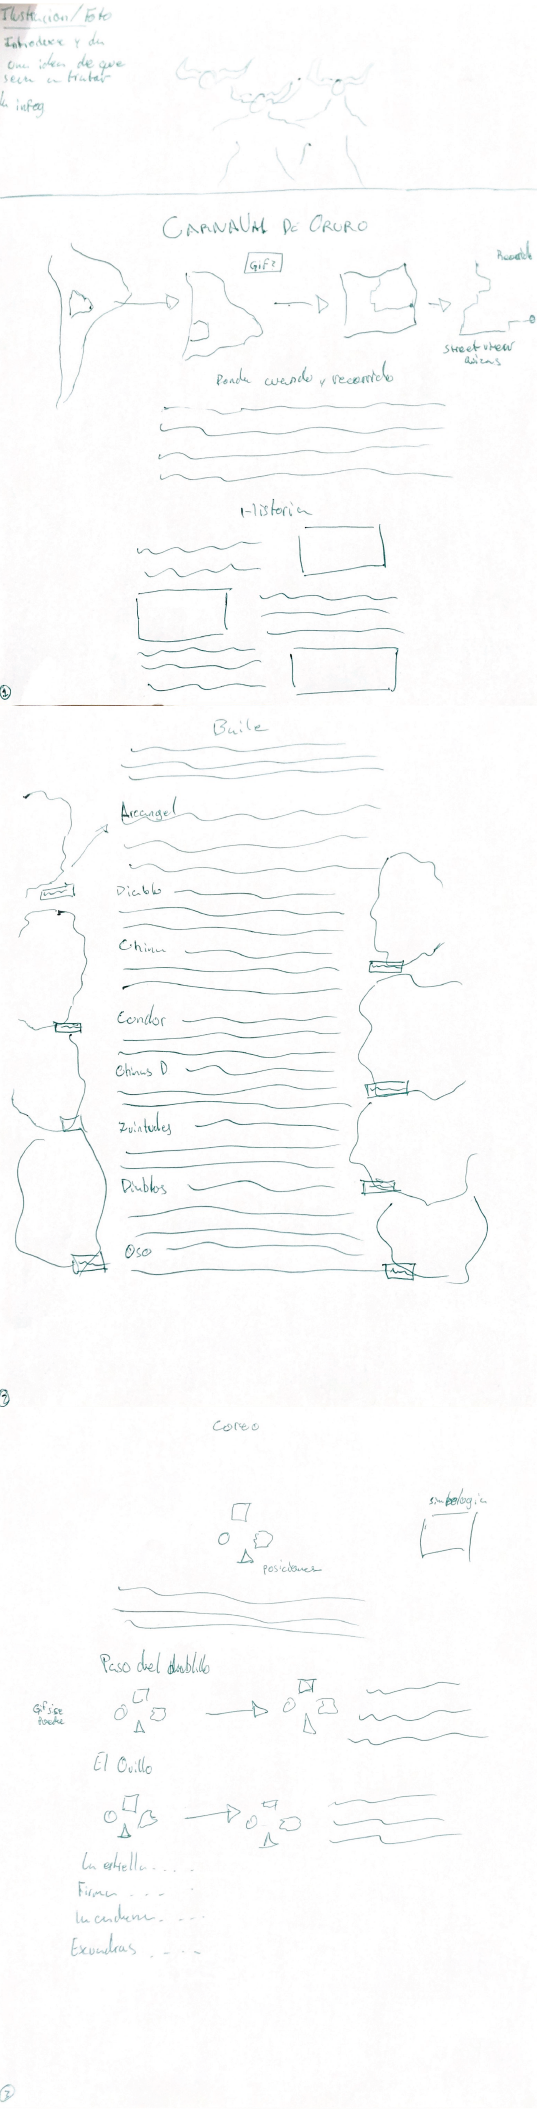 Ilustracion/Foto
Introduce y da
una idea de que
sera a tratar
la infog
CARNAVAL DE ORURO
GIF?
Recorrido
Street View
Donde cuando y recorrido
Historia
1
Baile
Arcangel
Diablo
China
Condor
Chinas D
Diablos
Oso
2
Coreo
simbologia
posiciones
Paso del diablillo
Gif si se
puede
El Ovillo
La estrella....
Firma ....
La cadena....
Escuadras ....
3